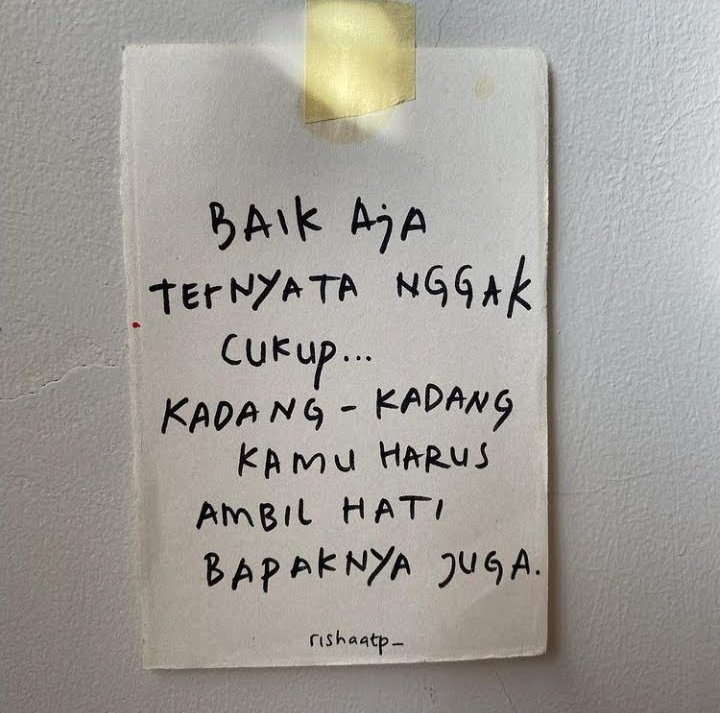 BAIK AJA
TERNYATA NGGAK
CUKUP...
KADANG - KADANG
KAMU HARUS
AMBIL HATI
BAPAKNYA JUGA.
rishaatp_